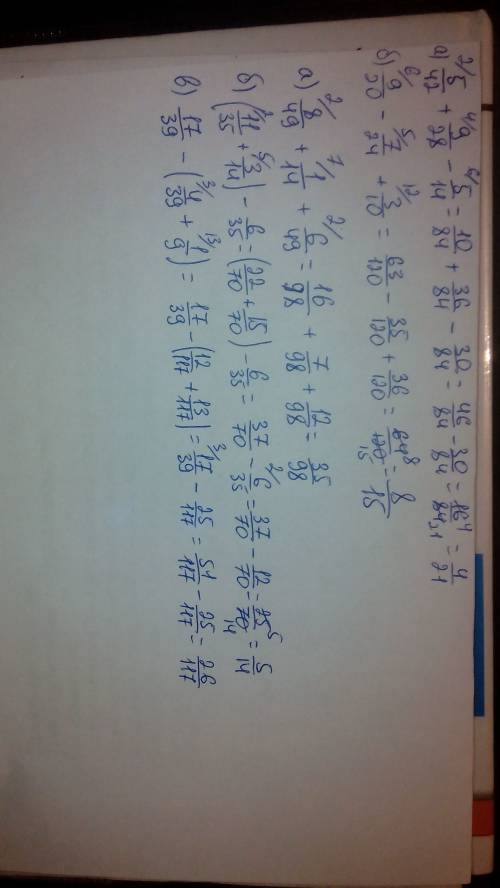 а) 5/42 + 9/28 - 5/14 = 10/84 + 36/84 - 30/84 = 46/84 - 30/84 = 16/84 = 4/21
б) 9/20 - 7/24 + 3/10 = 63/120 - 35/120 + 36/120 = 64/120 = 8/15
а) 8/49 + 1/14 + 6/49 = 16/98 + 7/98 + 12/98 = 35/98
б) (11/35 + 3/14) - 6/35 = (22/70 + 15/70) - 6/35 = 37/70 - 6/35 = 37/70 - 12/70 = 25/70 = 5/14
в) 17/39 - (4/39 + 1/9) = 17/39 - (12/117 + 13/117) = 17/39 - 25/117 = 51/117 - 25/117 = 26/117